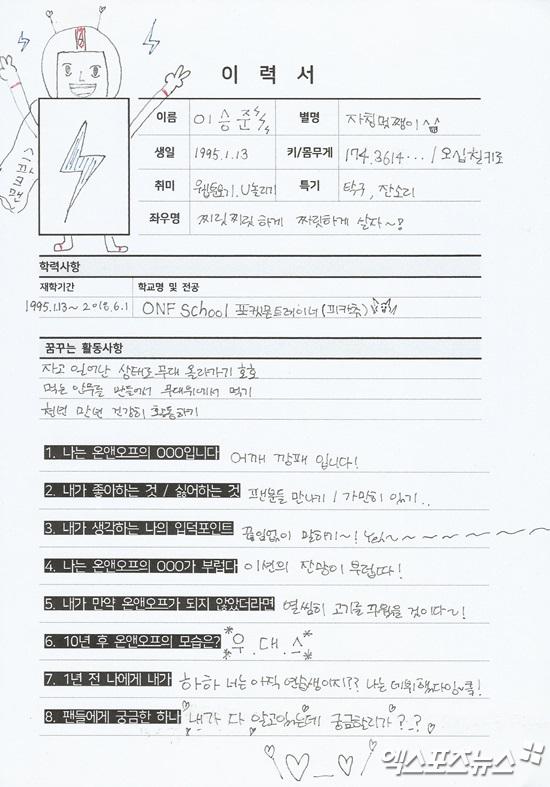 이 력 서
이름 이승준 별명 자칭멋쨍이
생일 1995.1.13 키/몸무게 174.3614··· / 오십칠키로
취미 웹툰보기, U놀리기 특기 탁구, 잔소리
좌우명 찌릿찌릿하게 짜릿하게 살자~!
찌릿맨
학력사항
재학기간 학교명 및 전공
1995.1.13~2018.6.1 ONF School 포켓몬트레이너 (피카츄)
꿈꾸는 활동사항
자고 일어난 상태로 무대 올라가기 호호
먹는 안무를 만들어서 무대위에서 먹기
천년 만년 건강히 활동하기
1. 나는 온앤오프의 OOO입니다 어깨 깡패 입니다!
2. 내가 좋아하는 것 / 싫어하는 것 팬분들 만나기 / 가만히 있기..
3. 내가 생각하는 나의 입덕포인트 끊임없이 말하기~! Yeh~~~~~~~~
4. 나는 온앤오프의 OOO가 부럽다 이션의 잔망이 부럽따!
5. 내가 만약 온앤오프가 되지 않았더라면 열씸히 고기를 구웠을 것이다~!
6. 10년 후 온앤오프의 모습은? 우.대.스
7. 1년 전 나에게 내가 하하 너는 아직 연습생이지?? 나는 데뷔했다임~쿸!
8. 팬들에게 궁금한 하나 내가 다 알고있는데 궁금할리가 ?_?
엑스포츠뉴스